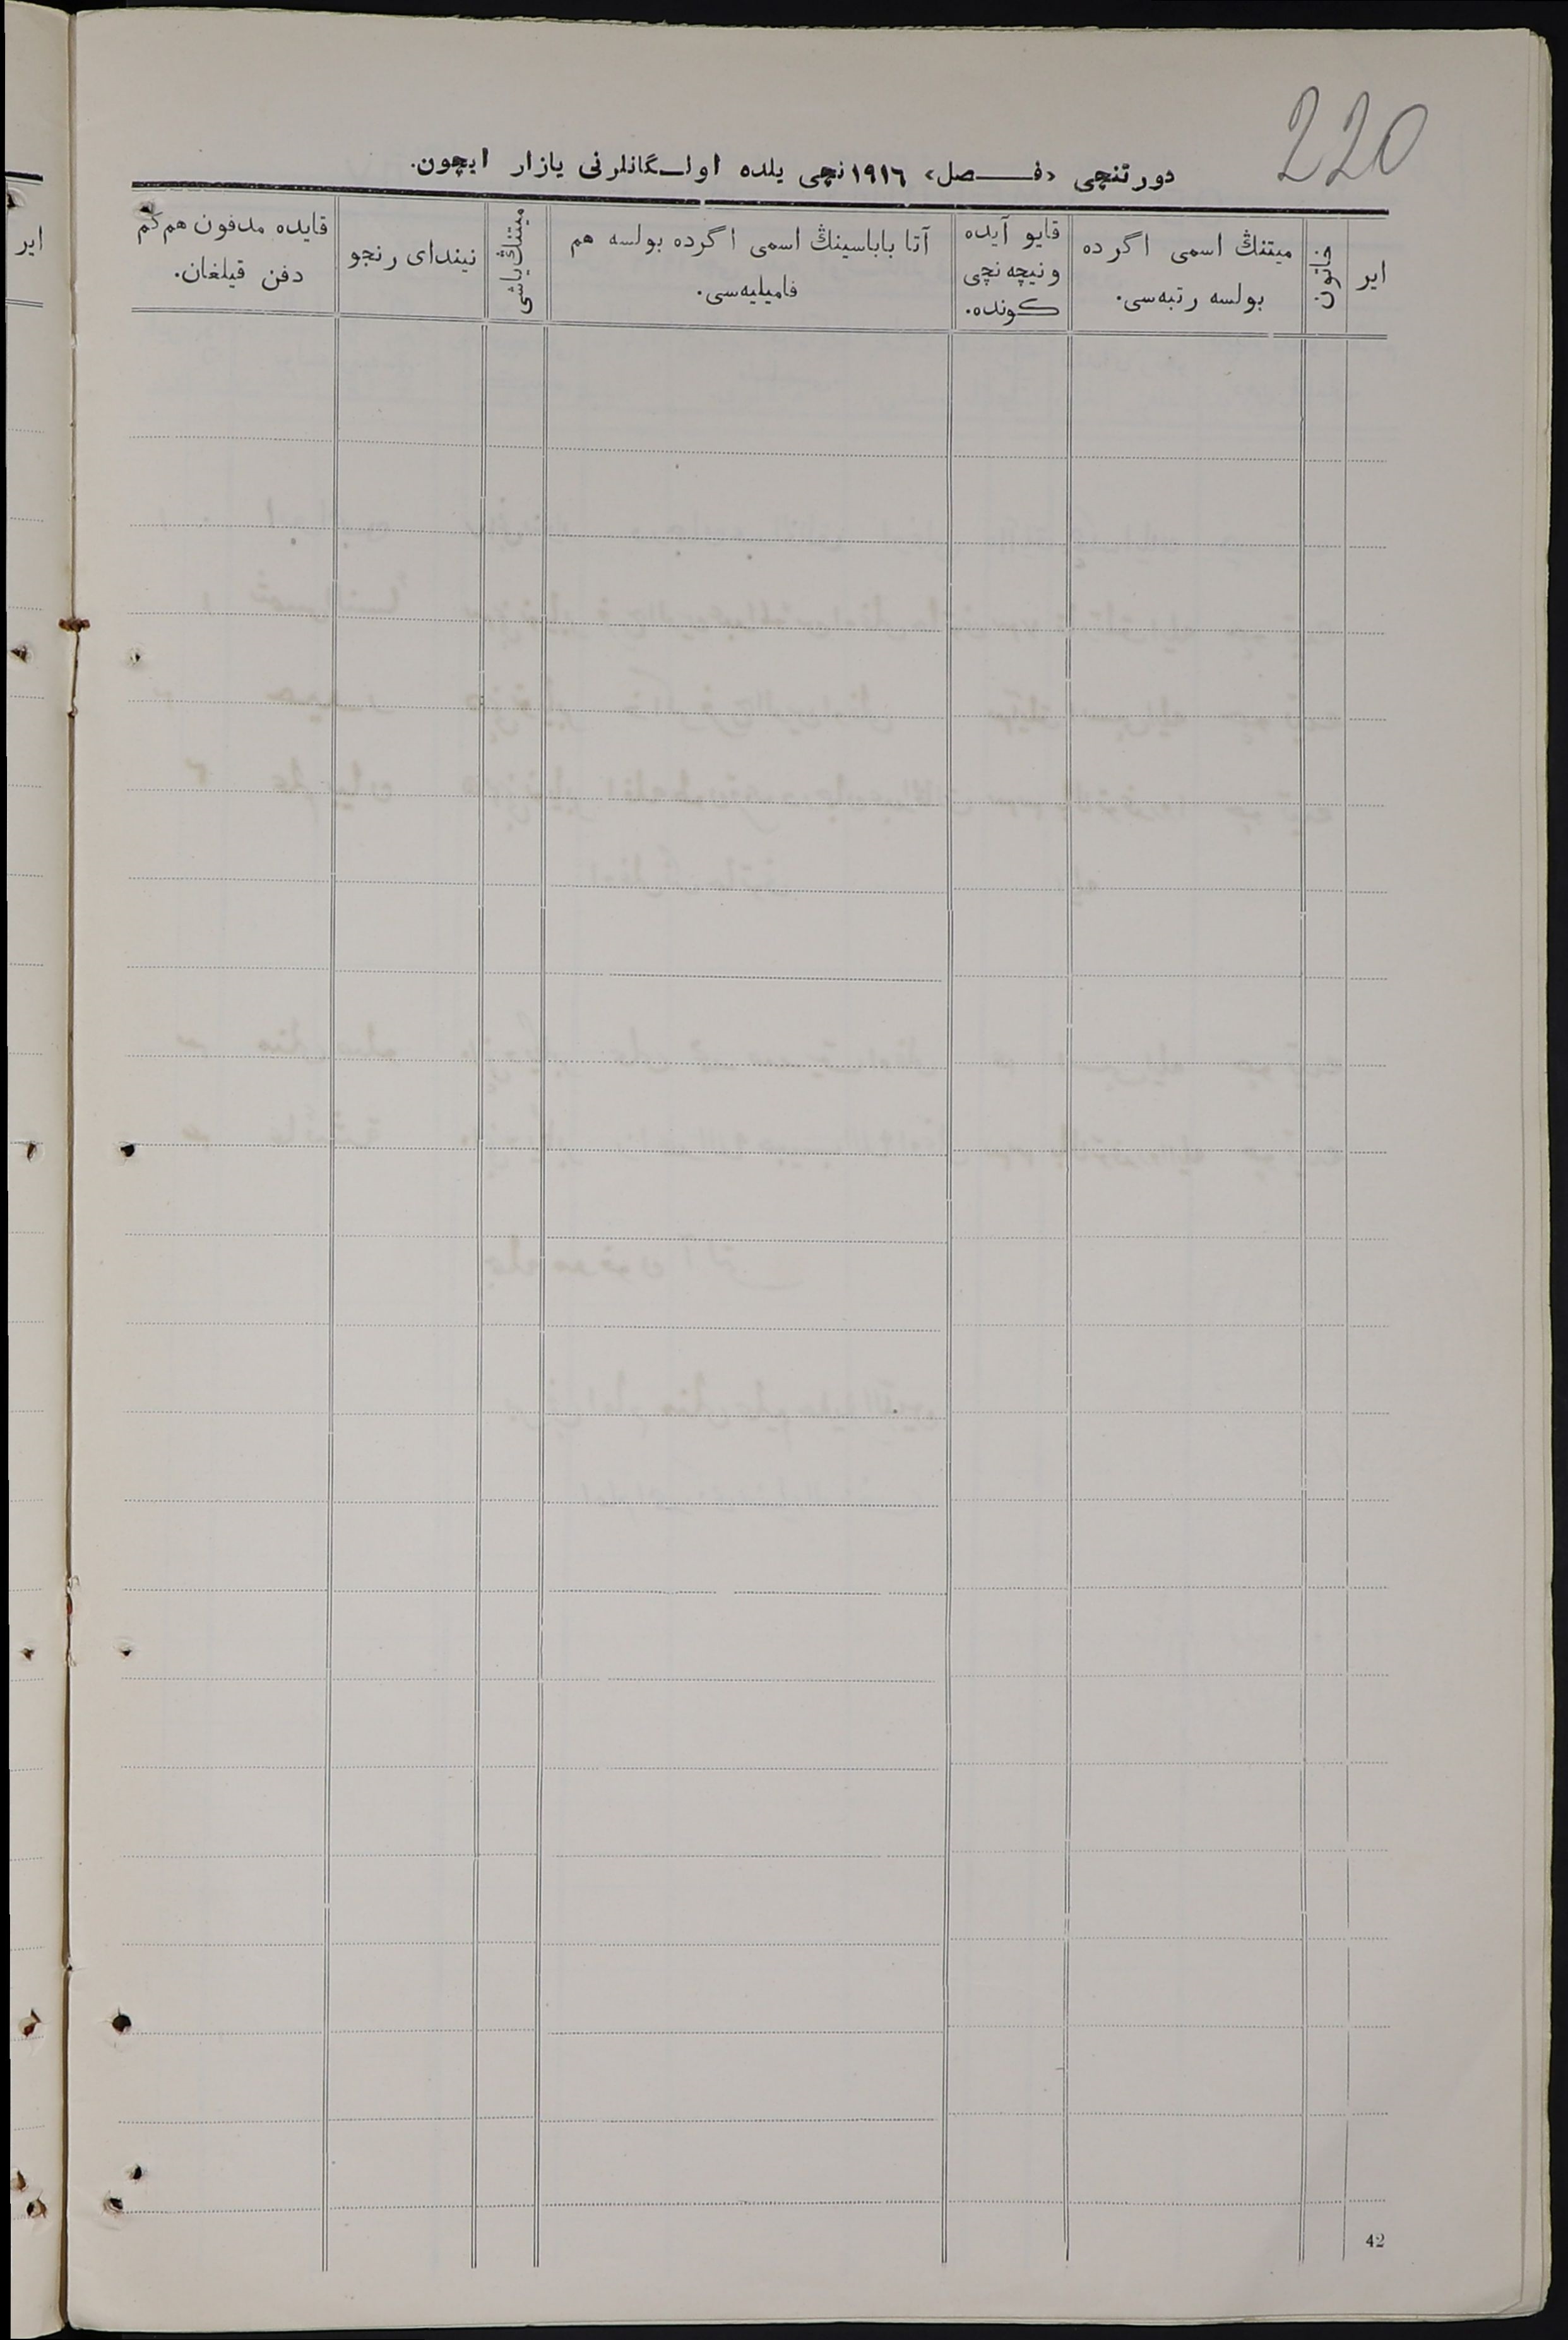 220
دورتنچی «فـــصل» ١٩١٦نچی یلده اولـــگانلرنی یازار ایچون.
ایر
خاتون
میتنڭ اسمی اگرده
بولسه رتبه‌سی.
قایو آیده
ونیچه نچی
کونده.
آتا باباسینڭ اسمی اگرده بولسه هم
فامیلیه‌سی.
میتنڭ یاشی
نیندای رنجو
قایده مدفون هم کم
دفن قیلغان.
ایر
42